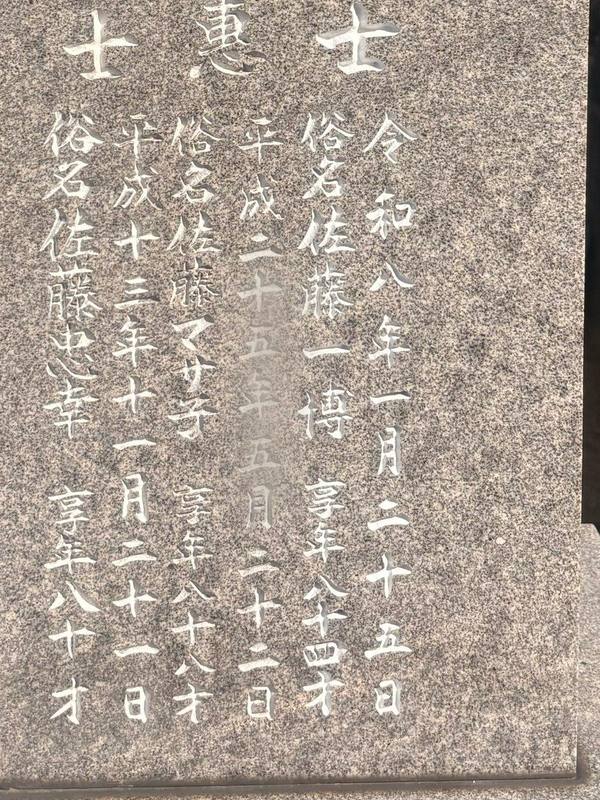 士
令和八年一月二十五日
俗名佐藤一博 享年八十四才
惠
平成二十五年五月二十二日
俗名佐藤マサ子 享年八十八才
士
平成十三年十一月二十一日
俗名佐藤忠幸 享年八十才